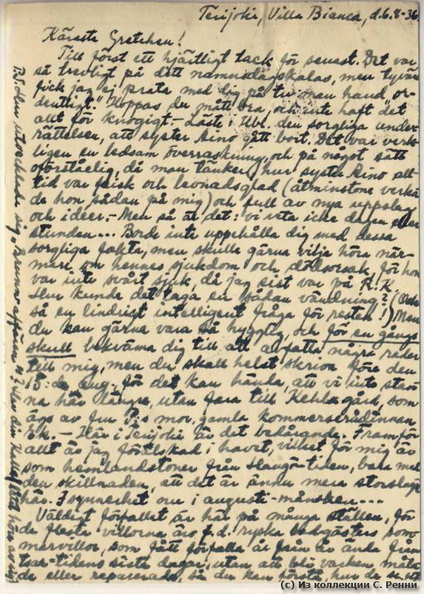 Terijoki, Villa Bianca, d. 6.8-36
Käraste Gretchen!
Till först ett hjärtligt tack för senast. Det var
så trevligt på ditt namnsdagskalas, men tyvärr
fick jag ej prata med dig på tu man hand or-
dentligt. Hoppas du mått bra, och inte haft det
allt för knogigt. - Läste i Hbl. den sorgliga under-
rättelsen, att syster Aino gått bort. Det var verk-
ligen en ledsam överraskning, och på något sätt
oförståelig, då man tänker, hur syster Aino all-
tid var frisk och levnadsglad (åtminstone verka-
de hon sådan på mig) och full av nya uppslag
och idéer. - Men så är det: vi veta icke dagen eller
stunden... Borde inte uppehålla dig med dessa
sorgliga fakta, men skulle gärna vilja höra när-
mare om hennes sjukdom och dödsorsak, för hon
var inte svårt sjuk, då jag sist var på R.K.
Hur kunde det taga en sådan vändning?
så en lindrigt intelligent fråga för resten!) Men
du kan gärna vara så hygglig och för en gångs
skull bekväma dig till att avfatta några rader
till mig, men du skall helst skriva före den
15:de aug. för det kan hända, att vi inte stan-
na här längre, utan fara till Kehla gård, som
ägs av mor, gamla kommerserådinnan
- Här i Terijoki är det bedårande. Framför
allt är jag förtjust i havet, vilket för mig är
som hemlandstoner från Hangö-tiden, bara med
den skillnaden, att det är ändå mera storslaget
här. I synnerhet nu i augusti-månsken...
Väldigt förfallet är här på många ställen, för
de flesta villorna äro f.d. ryska badgästers som-
marvillor, som fått förfalla år från år ända från
tsar-tidens sista dagar, utan att bli varken måla-
de eller reparerade, så du kan förstå, hur de se ut
P.S. Hur utvecklade sig
(c) Из коллекции С. Ренни